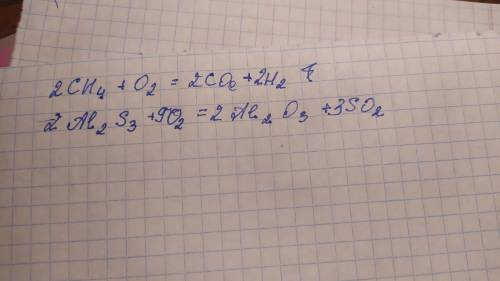 2CH₄ + O₂ = 2CO₂ + 2H₂
2Al₂S₃ + 9O₂ = 2Al₂O₃ + 3SO₂